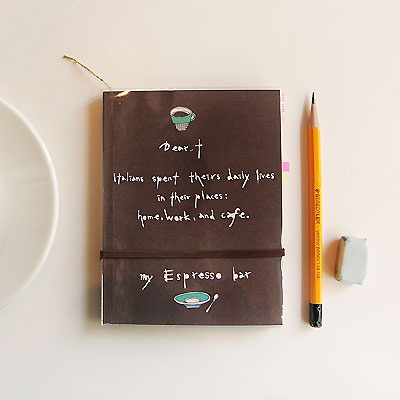 Dear. t
Italians spent theirs daily lives
in their places:
home, work, and cafe.
my Espresso bar
STAEDTLER